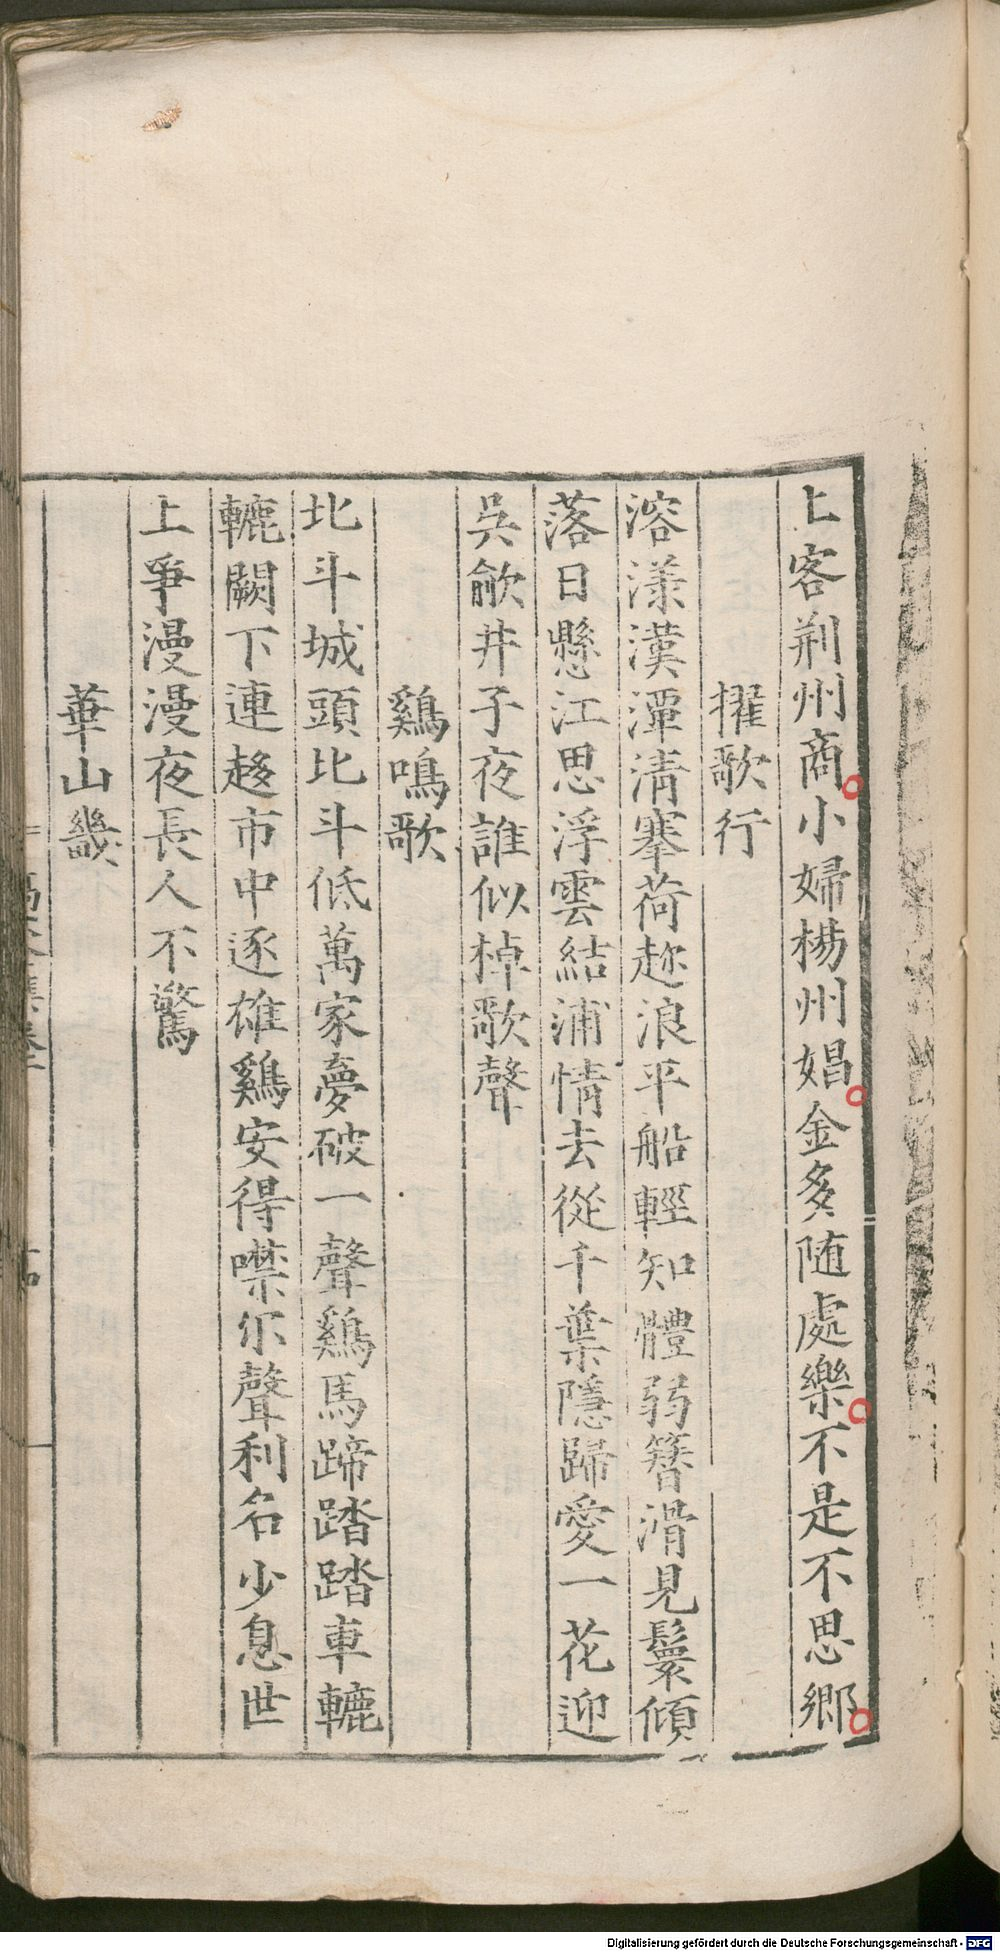 上客荆州商小婦楊州娼金多随處樂不是不思鄉
櫂歌行
溶漾漢潭清搴荷趂浪平船輕知體弱簪滑見鬟傾
落日懸江思浮雲結浦情去從千葉隱歸愛一花迎
吳歈井子夜誰似棹歌聲
鷄鳴歌
北斗城頭北斗低萬家夢破一聲鷄馬蹄踏踏車轆
轆闕下連趍市中逐雄鷄安得噤尔聲利名少息世
上爭漫漫夜長人不驚
華山畿
Digitalisierung gefördert durch die Deutsche Forschungsgemeinschaft - DFG